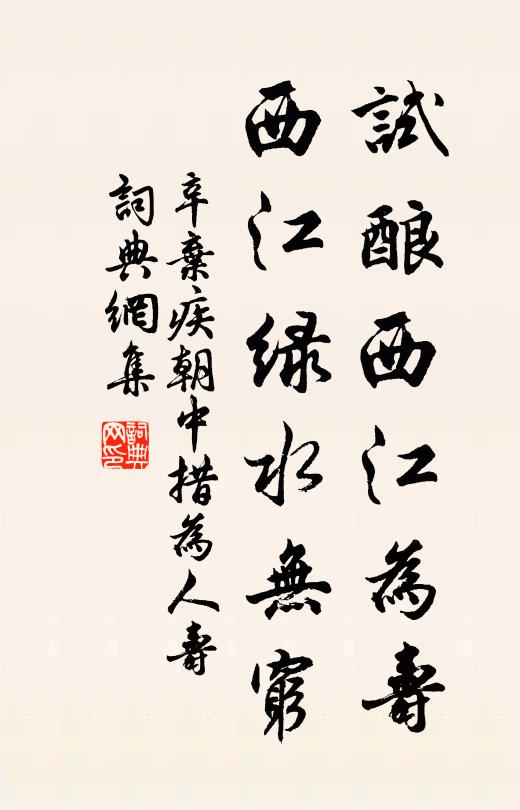 試酿西江為壽
西江绿水無窮
辛棄疾朝中措為人壽
詞典網集
詞典
网印